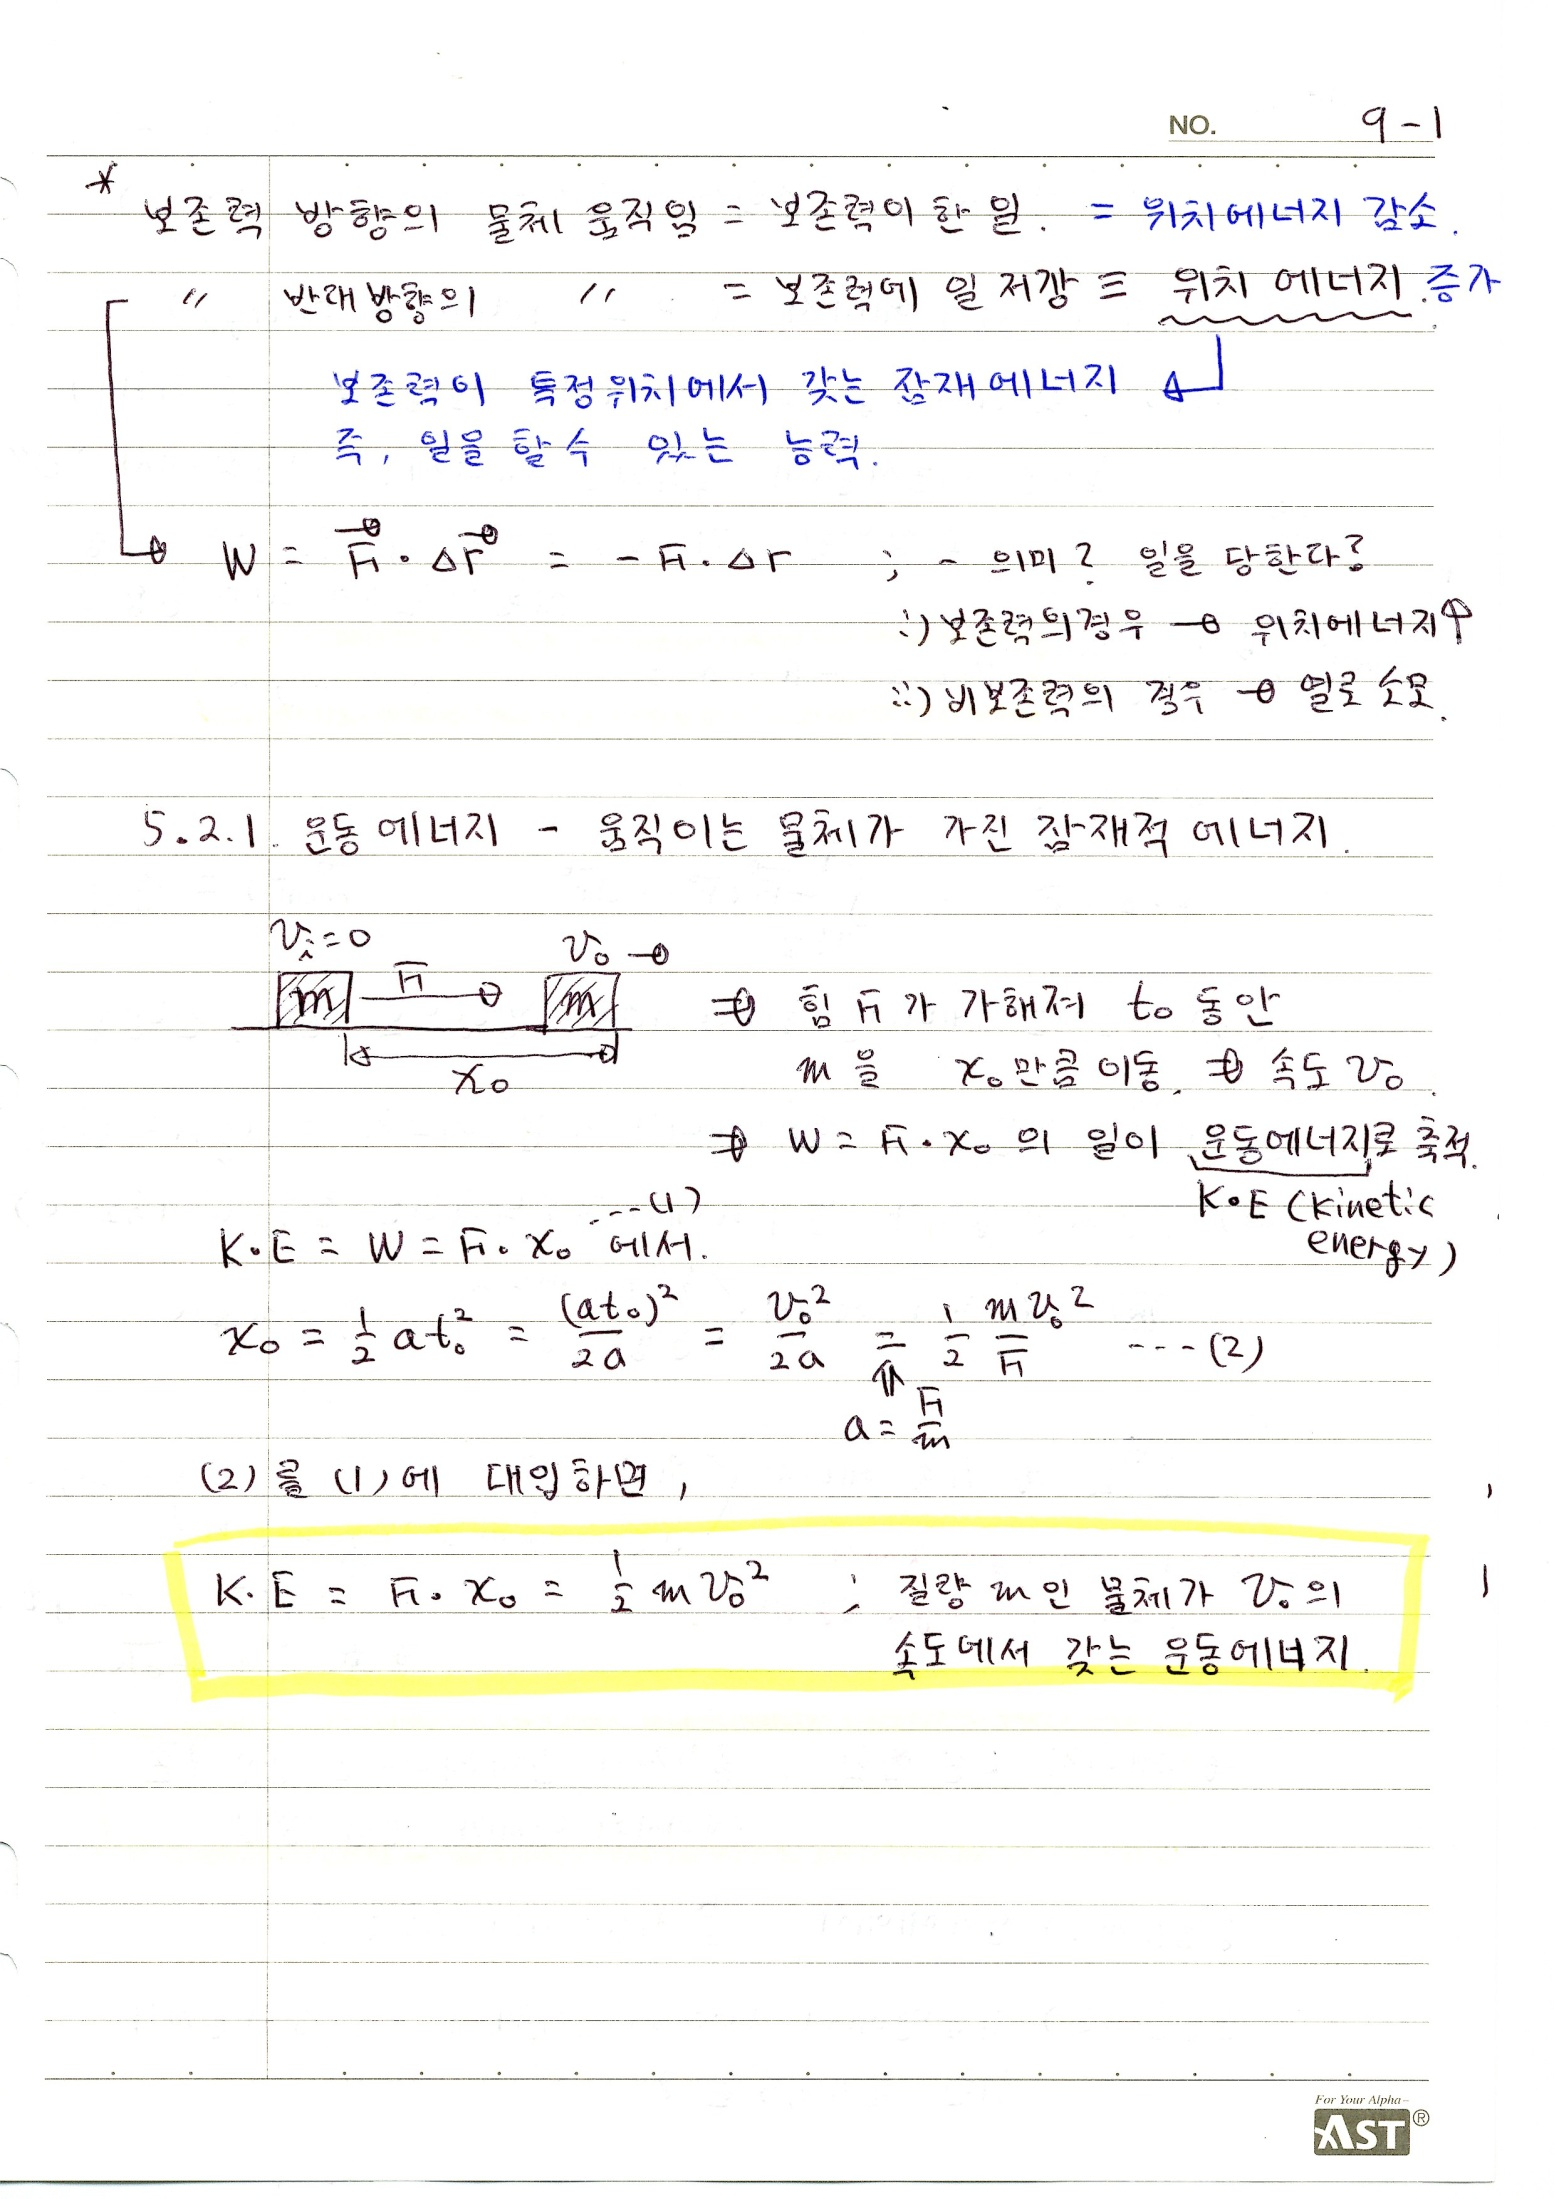 NO. 9-1
* 보존력 방향의 물체 움직임 = 보존력이 한 일. = 위치에너지 감소.
〃 반대방향의 〃 = 보존력에 일 저장 ≡ 위치 에너지. 증가
보존력이 특정위치에서 갖는 잠재에너지
즉, 일을 할 수 있는 능력.
W = F⃗ · Δr⃗ = - F · Δr ; - 의미? 일을 당한다?
i) 보존력의 경우 → 위치에너지↑
ii) 비보존력의 경우 → 열로 소모.
5.2.1. 운동에너지 - 움직이는 물체가 가진 잠재적 에너지.
vᵢ=0 v₀ →
m F m ⇒ 힘 F가 가해져 t₀ 동안
x₀ m을 x₀만큼 이동. ⇒ 속도 v₀.
⇒ W = F·x₀의 일이 운동에너지로 축적.
K·E (Kinetic
energy)
K·E = W = F·x₀ ---(1) 에서.
x₀ = 1/2 at₀² = (at₀)²/2a = v₀²/2a = 1/2 mv₀²/F ---(2)
⇑
a = F/m
(2)를 (1)에 대입하면,
K·E = F·x₀ = 1/2 mv₀² ; 질량 m인 물체가 v₀의
속도에서 갖는 운동에너지.
For Your Alpha-
AST®